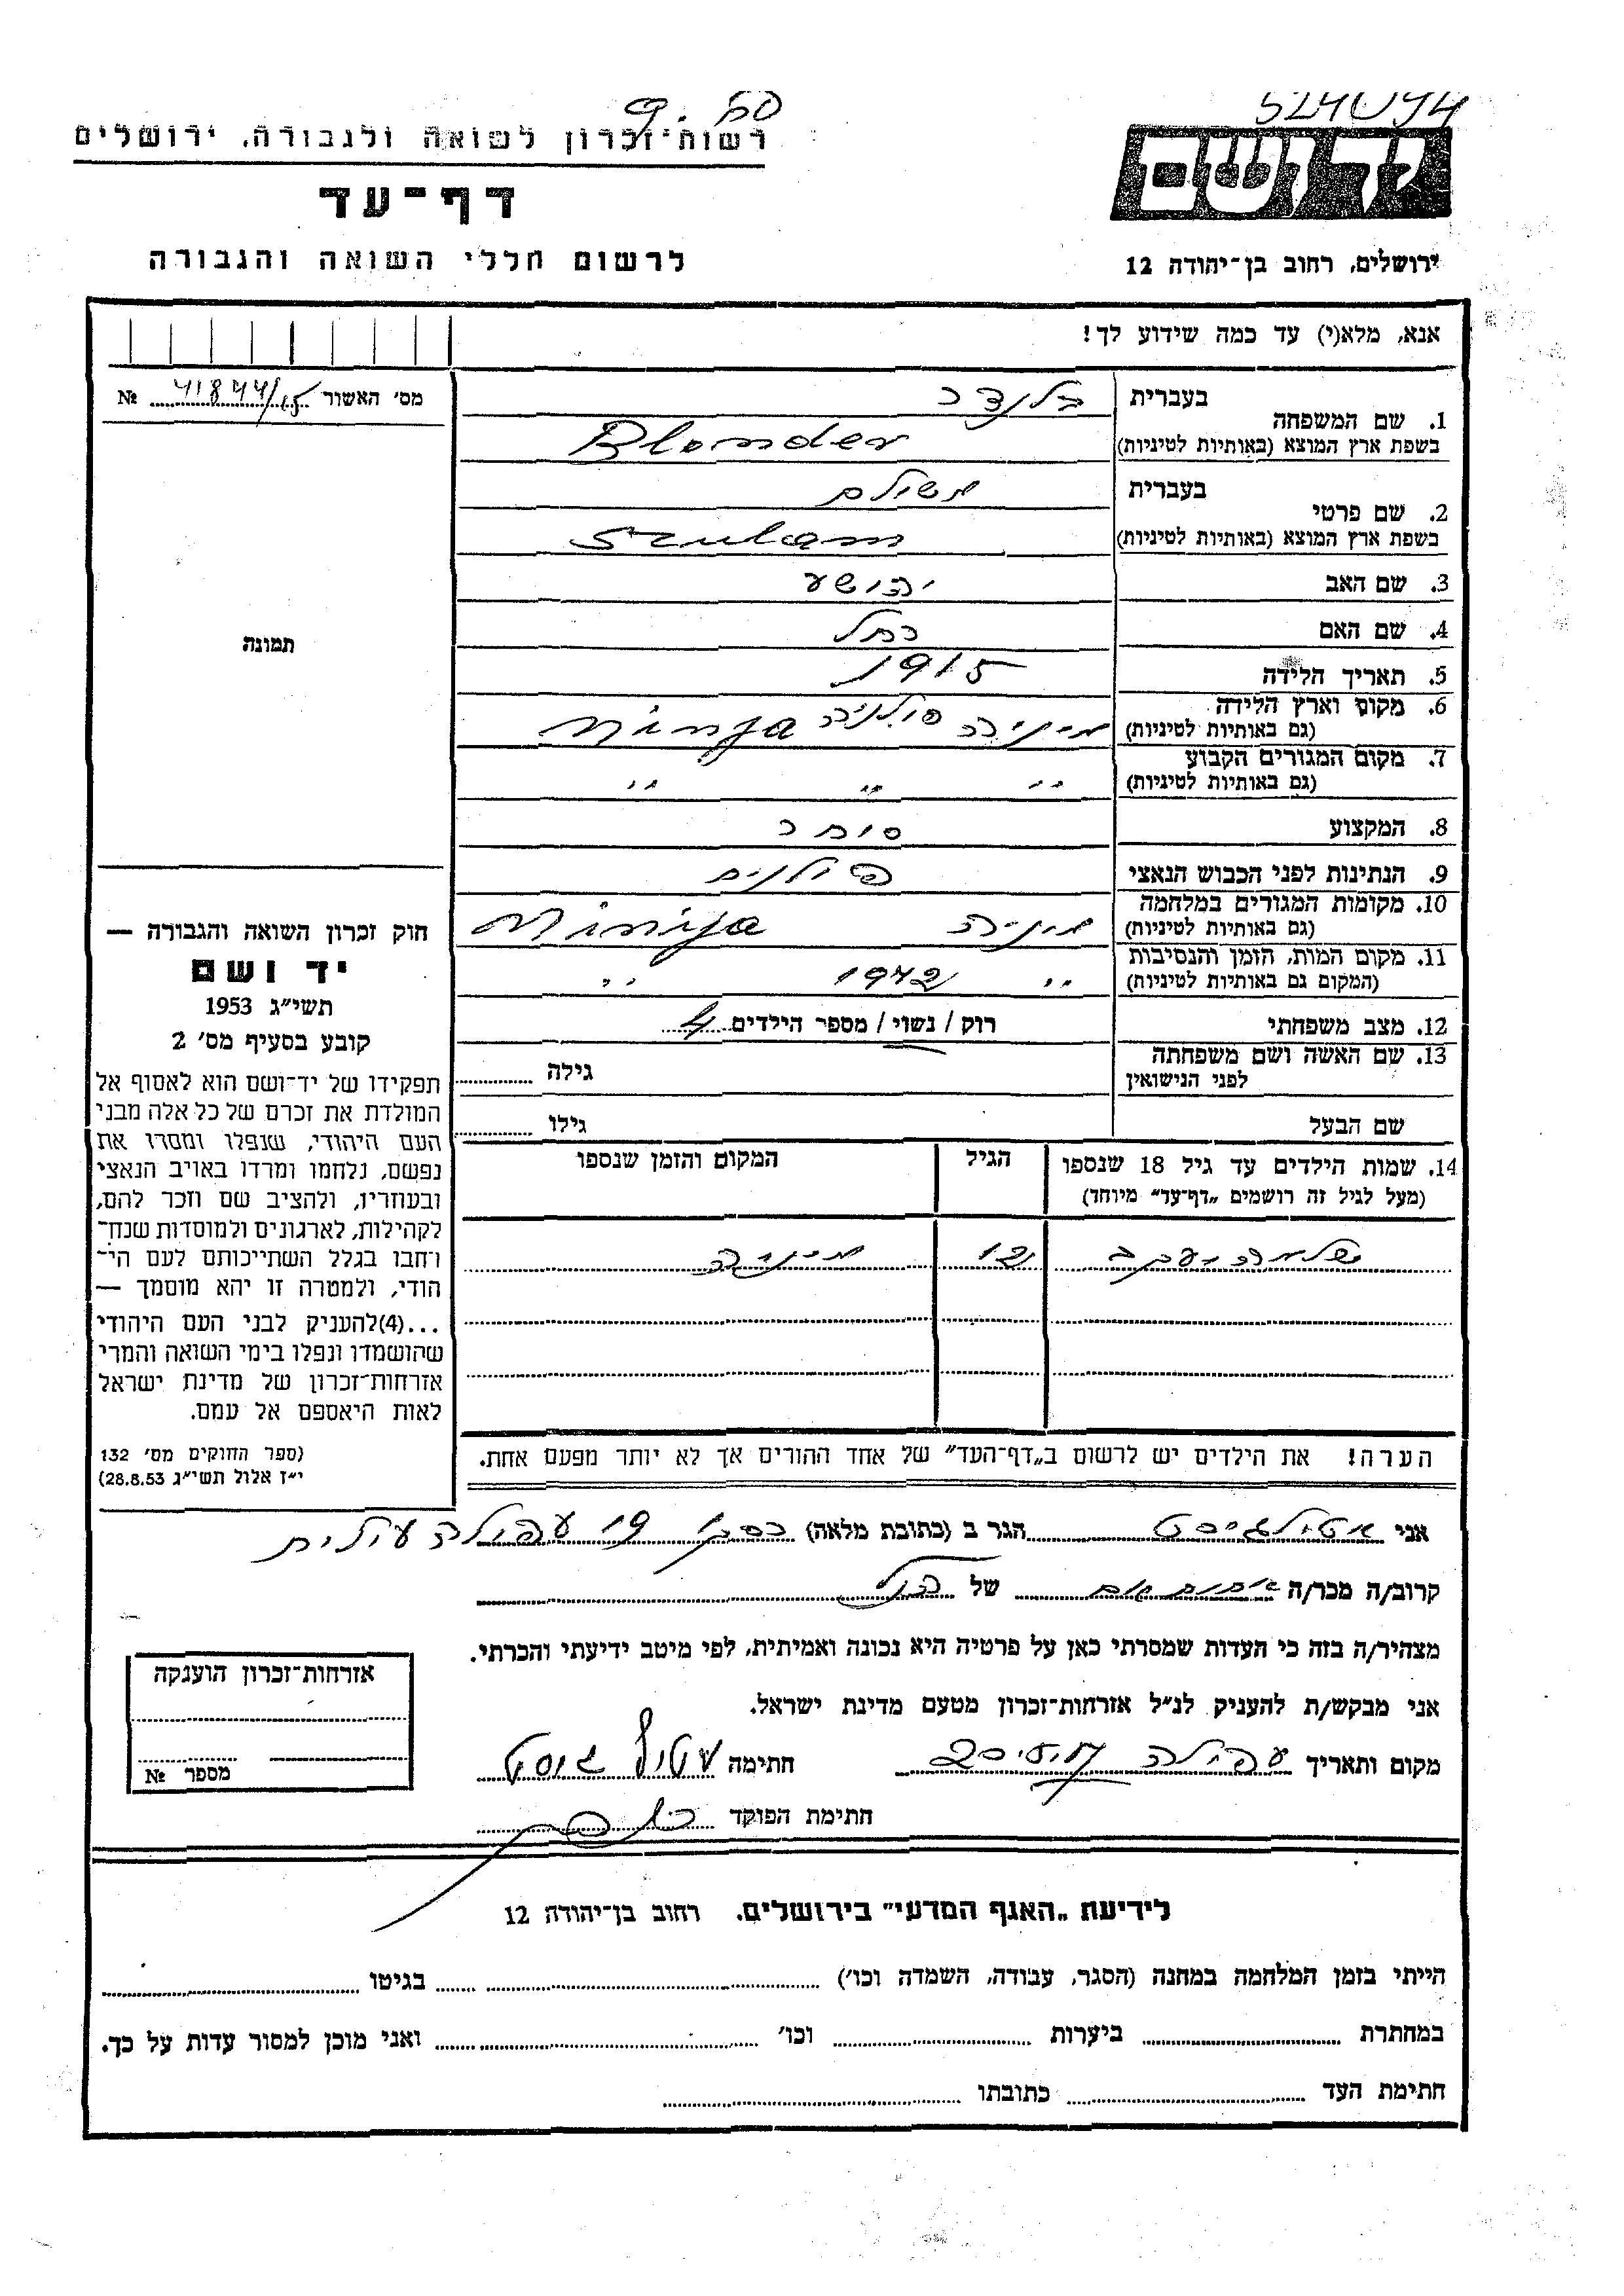 ידושם
ירושלים, רחוב בן־יהודה 12
רשות־זכרון לשואה ולגבורה, ירושלים
דף־עד
לרשום חללי השואה והגבורה
אנא, מלא(י) עד כמה שידוע לך!
מס׳ האשור 41844/15 №
1. שם המשפחה בעברית בלנדר
בשפת ארץ המוצא (באותיות לטיניות) Blonder
2. שם פרטי בעברית משולם
בשפת ארץ המוצא (באותיות לטיניות) Szulam
3. שם האב יהושע
4. שם האם רחל
5. תאריך הלידה 1915
6. מקום וארץ הלידה
(גם באותיות לטיניות) פולניה
7. מקום המגורים הקבוע
(גם באותיות לטיניות) ״ ״ ״
8. המקצוע סוחר
9. הנתינות לפני הכבוש הנאצי פולנית
10. מקומות המגורים במלחמה
(גם באותיות לטיניות)
11. מקום המות, הזמן והנסיבות
(המקום גם באותיות לטיניות) ״ 1942 ״
12. מצב משפחתי רוק / נשוי / מספר הילדים 4
13. שם האשה ושם משפחתה
לפני הנישואין גילה
שם הבעל גילו
14. שמות הילדים עד גיל 18 שנספו
(מעל לגיל זה רושמים „דף־עד״ מיוחד) הגיל המקום והזמן שנספו
שלמה יעקב 12
הערה! את הילדים יש לרשום ב„דף־העד״ של אחד ההורים אך לא יותר מפעם אחת.
תמונה
חוק זכרון השואה והגבורה —
יד ושם
תשי״ג 1953
קובע בסעיף מס׳ 2
תפקידו של יד־ושם הוא לאסוף אל
המולדת את זכרם של כל אלה מבני
העם היהודי, שנפלו ומסרו את
נפשם, נלחמו ומרדו באויב הנאצי
ובעוזריו, ולהציב שם וזכר להם,
לקהילות, לארגונים ולמוסדות שנח־
רחבו בגלל השתייכותם לעם הי־
הודי, ולמטרה זו יהא מוסמך —
...(4)להעניק לבני העם היהודי
שהושמדו ונפלו בימי השואה והמרי
אזרחות־זכרון של מדינת ישראל
לאות היאספם אל עמם.
(ספר החוקים מס׳ 132
י״ז אלול תשי״ג 28.8.53)
אני הגר ב (כתובת מלאה) 19 עפולה עילית
קרוב/ה מכר/ה של הנ״ל
מצהיר/ה בזה כי העדות שמסרתי כאן על פרטיה היא נכונה ואמיתית, לפי מיטב ידיעתי והכרתי.
אני מבקש/ת להעניק לנ״ל אזרחות־זכרון מטעם מדינת ישראל.
מקום ותאריך עפולה חתימה
חתימת הפוקד
אזרחות־זכרון הוענקה
מספר №
לידיעת „האגף המדעי״ בירושלים. רחוב בן־יהודה 12
הייתי בזמן המלחמה במחנה (הסגר, עבודה, השמדה וכו׳) בגיטו
במחתרת ביערות וכו׳ ואני מוכן למסור עדות על כך.
חתימת העד כתובתו